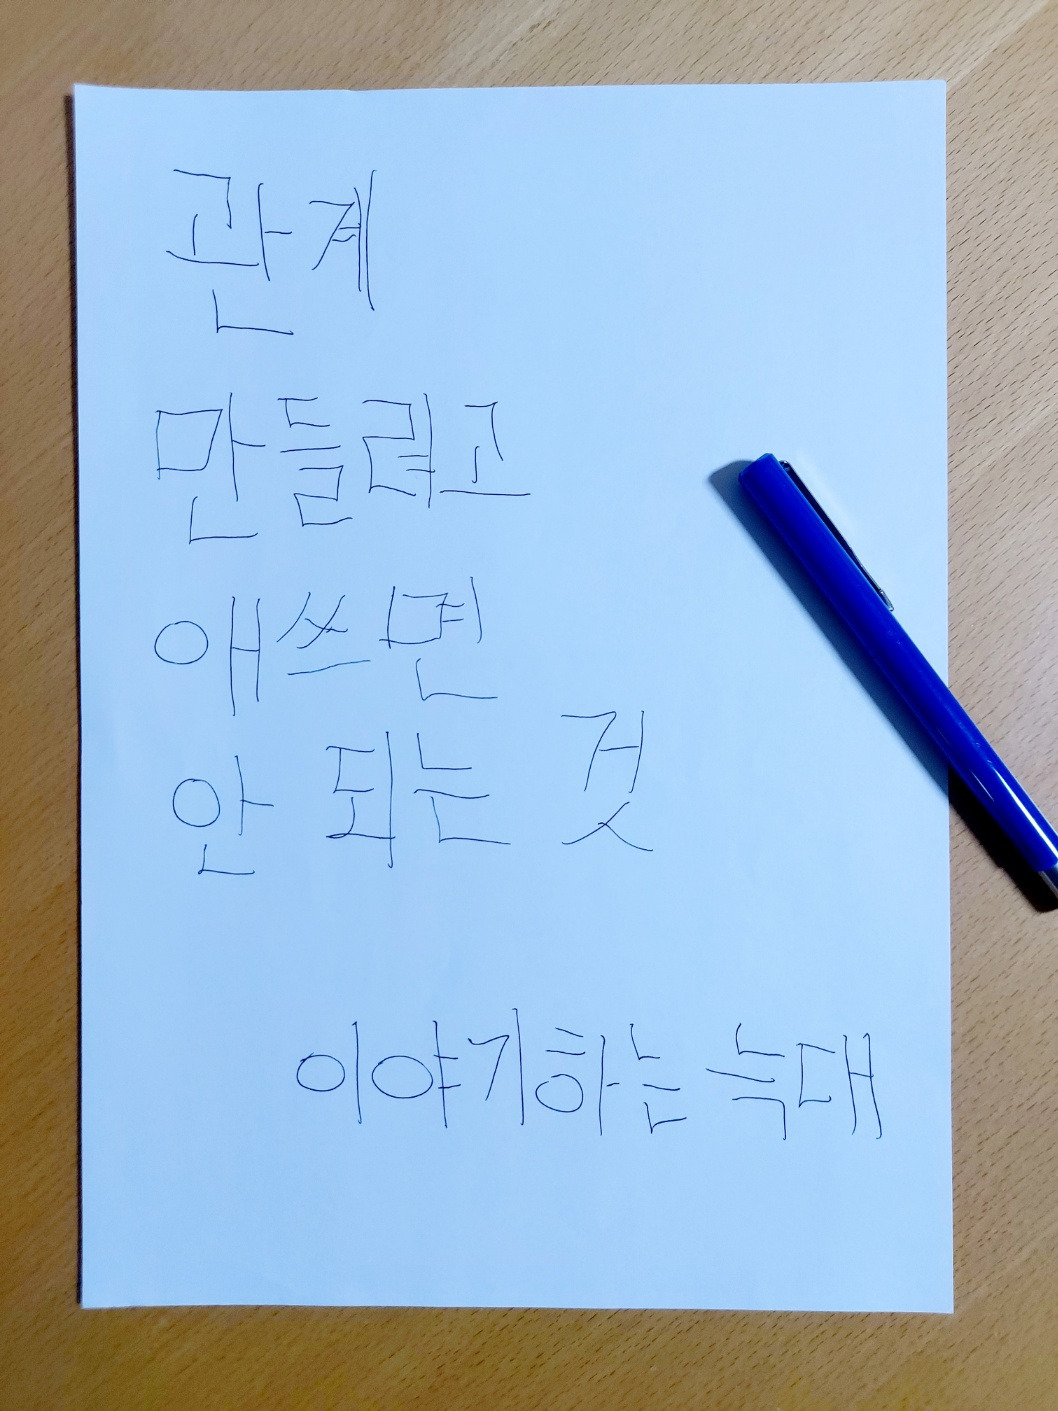 관계
만들려고
애쓰면
안 되는 것
이야기하는 늑대